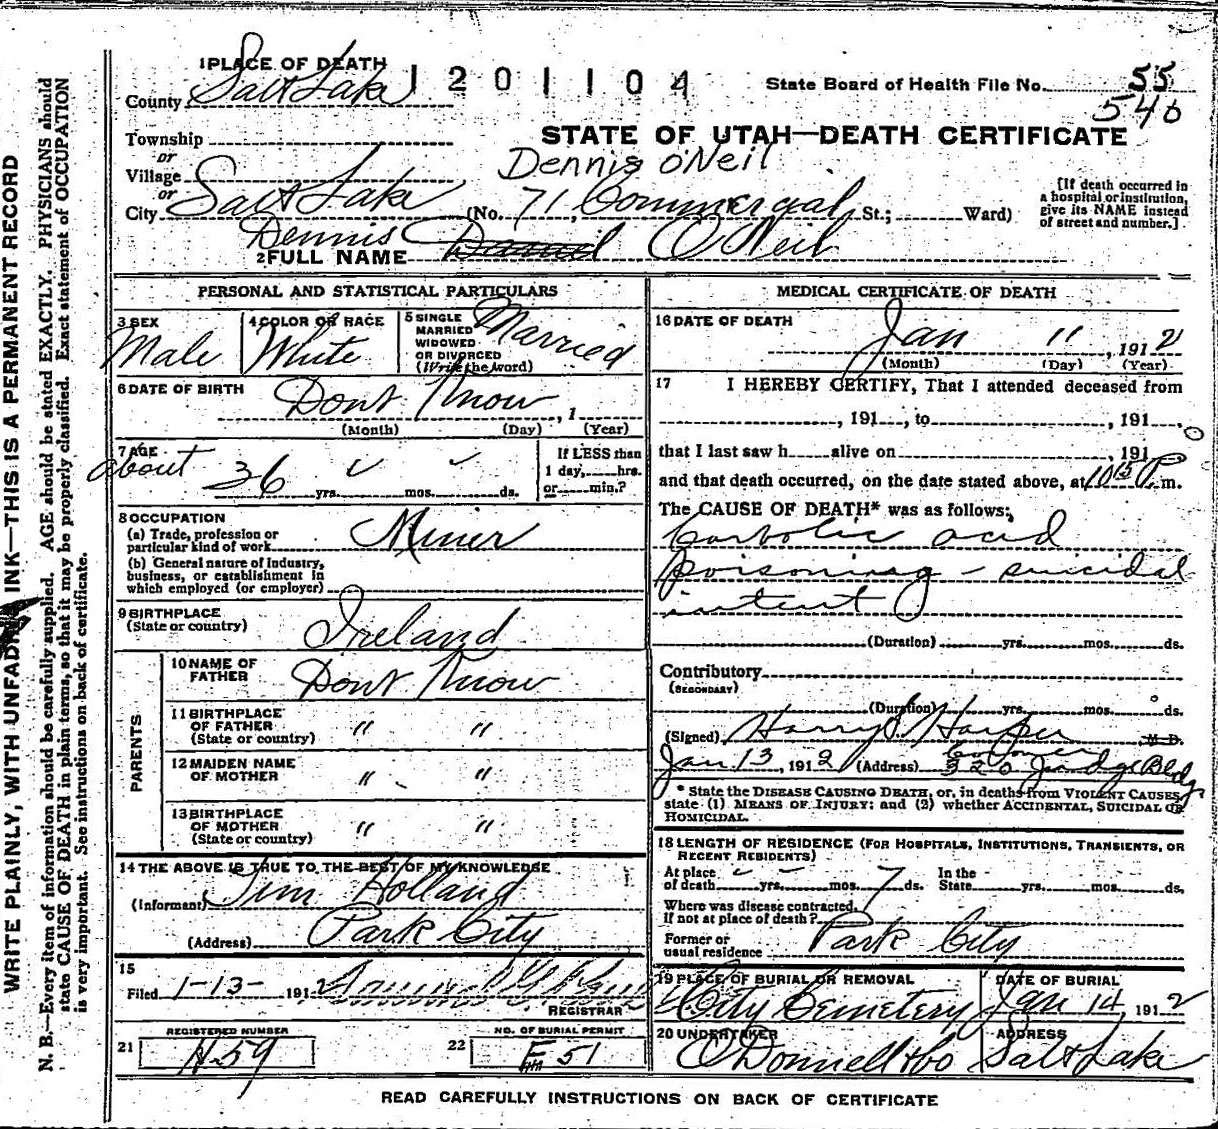 WRITE PLAINLY, WITH UNFADING INK—THIS IS A PERMANENT RECORD
N. B.—Every item of information should be carefully supplied. AGE should be stated EXACTLY. PHYSICIANS should
state CAUSE OF DEATH in plain terms, so that it may be properly classified. Exact statement of OCCUPATION
is very important. See instructions on back of certificate.
1 PLACE OF DEATH
1201104
State Board of Health File No. 55
County Salt Lake
540
STATE OF UTAH—DEATH CERTIFICATE
Township
or
Dennis O'Neil
Village
or
City Salt Lake (No. 71, Commercial St.; Ward)
[If death occurred in
a hospital or institution,
give its NAME instead
of street and number.]
2 FULL NAME Dennis Daniel O'Neil
PERSONAL AND STATISTICAL PARTICULARS
3 SEX
Male
4 COLOR OR RACE
White
5 SINGLE
MARRIED
WIDOWED
OR DIVORCED
(Write the word)
Married
6 DATE OF BIRTH
Dont Know, 1
(Month) (Day) (Year)
7 AGE
about 36 yrs. mos. ds.
If LESS than
1 day, hrs.
or min.?
8 OCCUPATION
(a) Trade, profession or
particular kind of work Miner
(b) General nature of industry,
business, or establishment in
which employed (or employer)
9 BIRTHPLACE
(State or country) Ireland
PARENTS
10 NAME OF
FATHER Dont Know
11 BIRTHPLACE
OF FATHER " "
(State or country)
12 MAIDEN NAME
OF MOTHER " "
13 BIRTHPLACE
OF MOTHER " "
(State or country)
14 THE ABOVE IS TRUE TO THE BEST OF MY KNOWLEDGE
(Informant) Tim Holland
(Address) Park City
15
Filed 1-13-, 1912
REGISTRAR
REGISTERED NUMBER
21 H-59
NO. OF BURIAL PERMIT
22 E 51
MEDICAL CERTIFICATE OF DEATH
16 DATE OF DEATH
Jan 11, 1912
(Month) (Day) (Year)
17 I HEREBY CERTIFY, That I attended deceased from
, 191 , to , 191 ,
that I last saw h alive on , 191
and that death occurred, on the date stated above, at 10 15 P. m.
The CAUSE OF DEATH* was as follows:
Carbolic acid
poisoning - suicidal
intent
(Duration) yrs. mos. ds.
Contributory
(SECONDARY)
(Duration) yrs. mos. ds.
(Signed) Harry S. Harper M. D.
Coroner
Jan 13, 1912 (Address) 320 Judge Bldg
* State the DISEASE CAUSING DEATH, or, in deaths from VIOLENT CAUSES,
state (1) MEANS OF INJURY; and (2) whether ACCIDENTAL, SUICIDAL or
HOMICIDAL.
18 LENGTH OF RESIDENCE (FOR HOSPITALS, INSTITUTIONS, TRANSIENTS, OR
RECENT RESIDENTS)
At place
of death yrs. mos. 7 ds.
In the
State yrs. mos. ds.
Where was disease contracted,
if not at place of death?
Former or
usual residence Park City
19 PLACE OF BURIAL OR REMOVAL
City Cemetery
DATE OF BURIAL
Jan 14, 1912
20 UNDERTAKER
O'Donnell & Co
ADDRESS
Salt Lake
READ CAREFULLY INSTRUCTIONS ON BACK OF CERTIFICATE